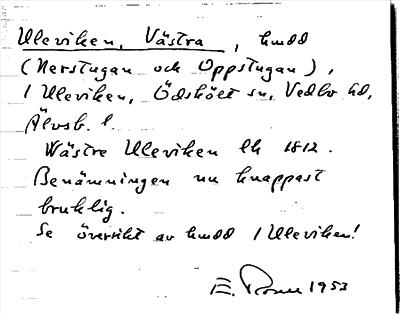 Uleviken, Västra, hmdd
(Nerstugan och Oppstugan),
1 Uleviken, Ödskölt sn, Vedbo hd,
Älvsb. l.
Västre Uleviken lk 1812.
Benämningen nu knappast
bruklig.
Se översikt av hmdd 1 Uleviken!
E. 1953